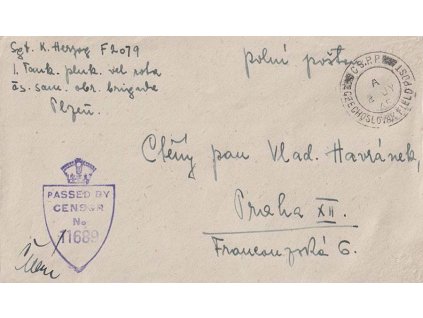 Sgt. K. Herzog F2079
1. Tank. pluk. vel rota
čs. sam. obr. brigáda
Plzeň.
polní pošta
C.S.P.P.
A
JY
45
CZECHOSLOVAK FIELD POST
PASSED BY
CENSOR
No
11689
Ctěný pan Vlad. Havránek,
Praha XII.
Francouzská 6.